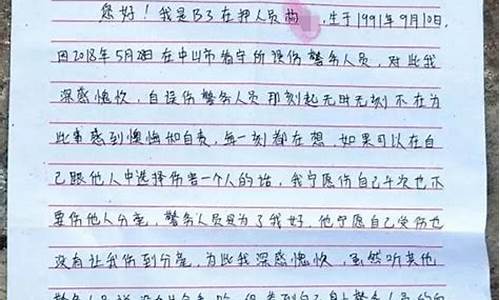 您好！我是B3在押人员尚 ，生于1991年9月10日，
因2018年5月2日在中山市看守所误伤警务人员，对此我
深感愧疚，自误伤警务人员那刻起无时无刻不在为
此事感到懊悔和自责，每一刻都在想，如果可以在自
己跟他人中选择伤害一个人的话，我宁愿伤自己千次也不
要伤他人分毫，警务人员是为了我好，他宁愿自己受伤也
没有让我伤到分毫，为此我深感愧疚，虽然听其他
警务人员说没有什么